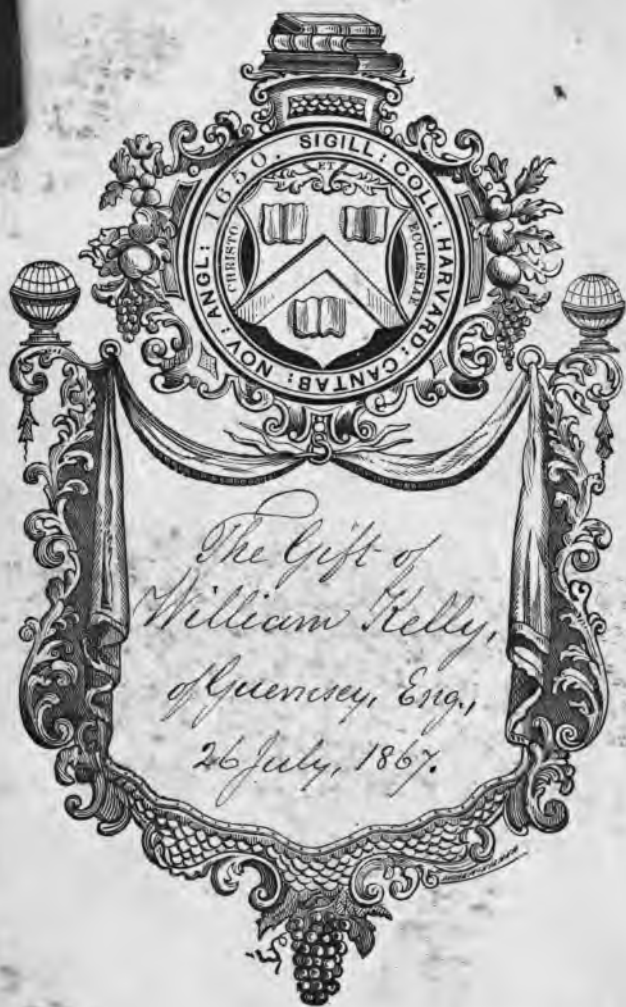 SIGILL: COLL: HARVARD: CANTAB: NOV: ANGL: 1650.
ET
CHRISTO
ECCLESIAE
The Gift of
William Kelly,
of Guernsey, Eng.,
26 July, 1867.